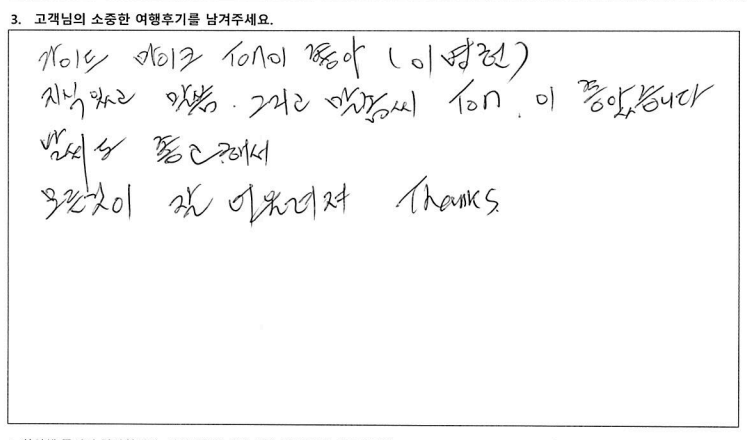 3. 고객님의 소중한 여행후기를 남겨주세요.
가이드 마이크 Ton이 좋아 (이병헌)
지식있고 말씀. 그리고 말씀씨 Ton.이 좋았습니다
날씨도 좋고해서
모든것이 잘 어울려져 Thanks.